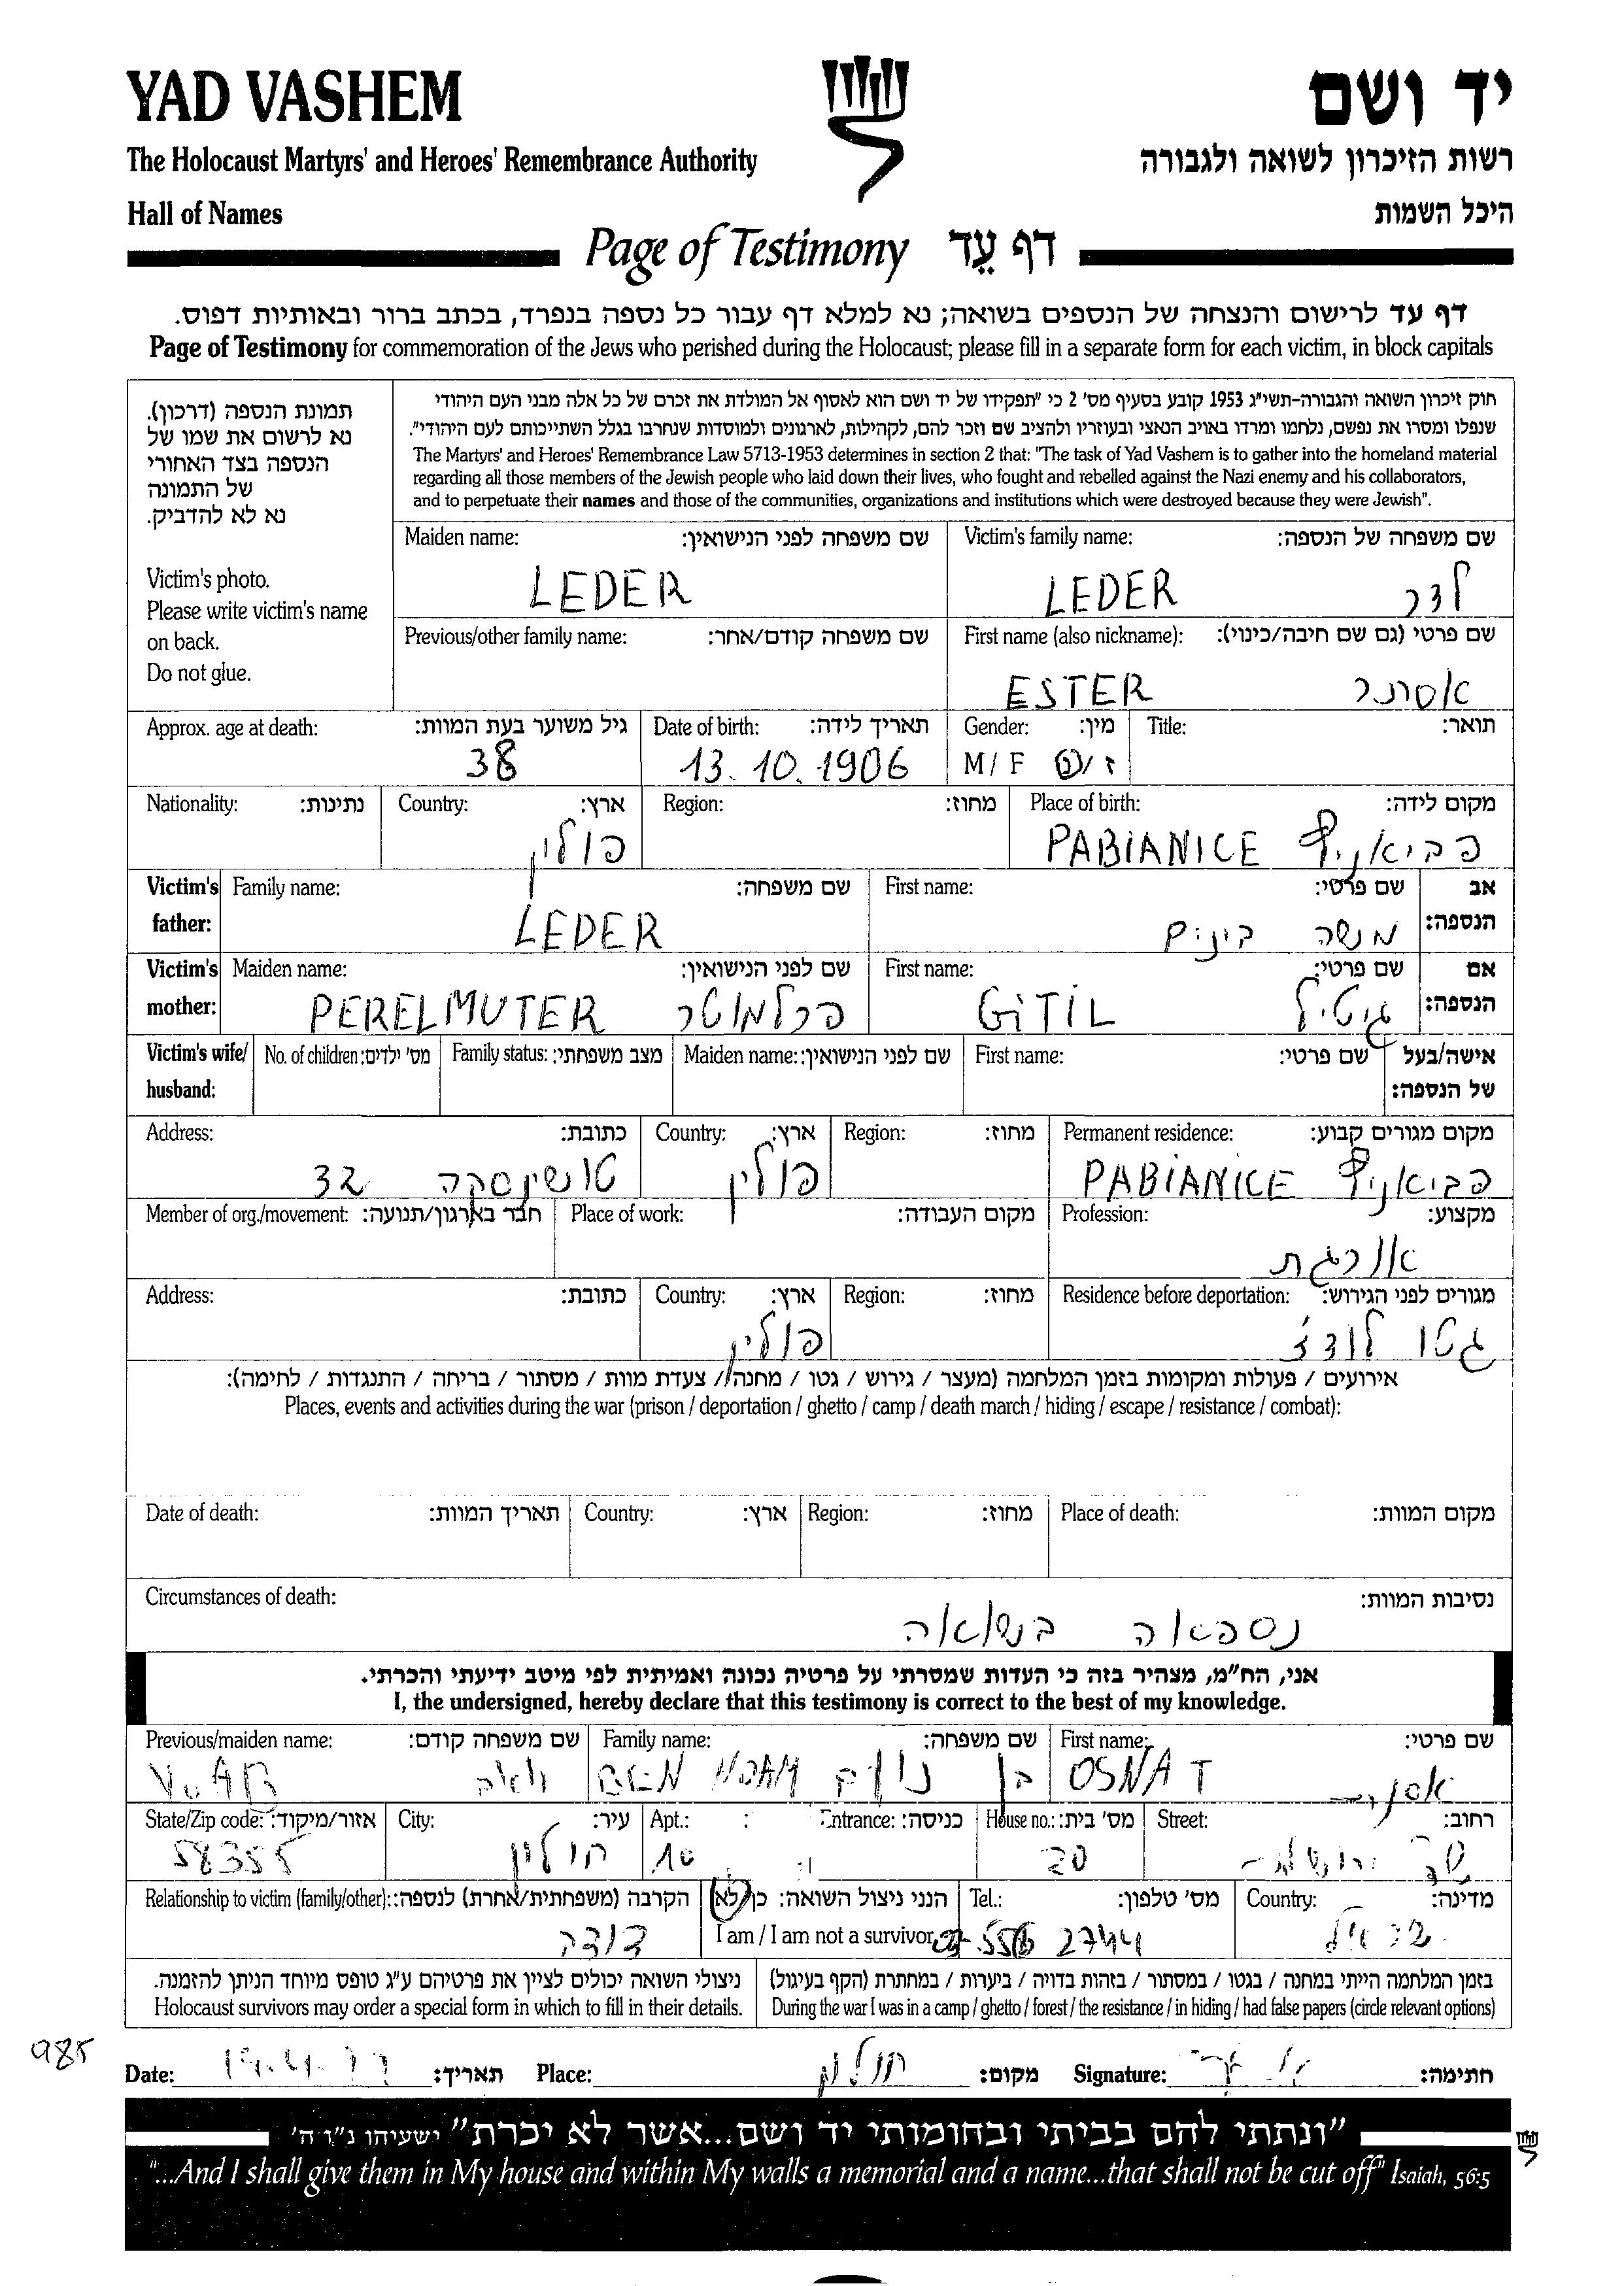 YAD VASHEM יד ושם
The Holocaust Martyrs' and Heroes' Remembrance Authority רשות הזיכרון לשואה ולגבורה
Hall of Names היכל השמות
Page of Testimony דף עֵד
דף עד לרישום והנצחה של הנספים בשואה; נא למלא דף עבור כל נספה בנפרד, בכתב ברור ובאותיות דפוס.
Page of Testimony for commemoration of the Jews who perished during the Holocaust; please fill in a separate form for each victim, in block capitals
תמונת הנספה (דרכון).
נא לרשום את שמו של
הנספה בצד האחורי
של התמונה
נא לא להדביק.
Victim's photo.
Please write victim's name
on back.
Do not glue.
חוק זיכרון השואה והגבורה-תשי"ג 1953 קובע בסעיף מס' 2 כי "תפקידו של יד ושם הוא לאסוף אל המולדת את זכרם של כל אלה מבני העם היהודי
שנפלו ומסרו את נפשם, נלחמו ומרדו באויב הנאצי ובעוזריו ולהציב שם וזכר להם, לקהילות, לארגונים ולמוסדות שנחרבו בגלל השתייכותם לעם היהודי".
The Martyrs' and Heroes' Remembrance Law 5713-1953 determines in section 2 that: "The task of Yad Vashem is to gather into the homeland material
regarding all those members of the Jewish people who laid down their lives, who fought and rebelled against the Nazi enemy and his collaborators,
and to perpetuate their names and those of the communities, organizations and institutions which were destroyed because they were Jewish".
Maiden name: שם משפחה לפני הנישואין: Victim's family name: שם משפחה של הנספה:
LEDER LEDER לדר
Previous/other family name: שם משפחה קודם/אחר: First name (also nickname): שם פרטי (גם שם חיבה/כינוי):
ESTER אסתר
Approx. age at death: גיל משוער בעת המוות: Date of birth: תאריך לידה: Gender: מין: Title: תואר:
38 13.10.1906 M / F ז/נ
Nationality: נתינות: Country: ארץ: Region: מחוז: Place of birth: מקום לידה:
פולין PABIANICE פביאניץ
Victim's father: Family name: שם משפחה: First name: שם פרטי: אב הנספה:
LEDER מנשה בינים
Victim's mother: Maiden name: שם לפני הנישואין: First name: שם פרטי: אם הנספה:
PERELMUTER פרלמוטר GITIL גיטיל
Victim's wife/ husband: No. of children: מס' ילדים: Family status: מצב משפחתי: Maiden name: שם לפני הנישואין: First name: שם פרטי: אישה/בעל של הנספה:
Address: כתובת: Country: ארץ: Region: מחוז: Permanent residence: מקום מגורים קבוע:
טושינסקה 32 פולין PABIANICE פביאניץ
Member of org./movement: חבר בארגון/תנועה: Place of work: מקום העבודה: Profession: מקצוע:
אורגת
Address: כתובת: Country: ארץ: Region: מחוז: Residence before deportation: מגורים לפני הגירוש:
פולין גטו לודז'
אירועים / פעולות ומקומות בזמן המלחמה (מעצר / גירוש / גטו / מחנה / צעדת מוות / מסתור / בריחה / התנגדות / לחימה):
Places, events and activities during the war (prison / deportation / ghetto / camp / death march / hiding / escape / resistance / combat):
Date of death: תאריך המוות: Country: ארץ: Region: מחוז: Place of death: מקום המוות:
Circumstances of death: נסיבות המוות:
נספאה בשואה
אני, הח"מ, מצהיר בזה כי העדות שמסרתי על פרטיה נכונה ואמיתית לפי מיטב ידיעתי והכרתי.
I, the undersigned, hereby declare that this testimony is correct to the best of my knowledge.
Previous/maiden name: שם משפחה קודם: Family name: שם משפחה: First name: שם פרטי:
BEN NOAM בן נועם OSNAT אסנת
State/Zip code: אזור/מיקוד: City: עיר: Apt.: Entrance: כניסה: House no.: מס' בית: Street: רחוב:
58355 חולון 10 20
Relationship to victim (family/other): הקרבה (משפחתית/אחרת) לנספה: הנני ניצול השואה: כן/לא Tel.: מס' טלפון: Country: מדינה:
דודה I am / I am not a survivor 5562744 ישראל
ניצולי השואה יכולים לציין את פרטיהם ע"ג טופס מיוחד הניתן להזמנה. בזמן המלחמה הייתי במחנה / בגטו / במסתור / בזהות בדויה / ביערות / במחתרת (הקף בעיגול)
Holocaust survivors may order a special form in which to fill in their details. During the war I was in a camp / ghetto / forest / the resistance / in hiding / had false papers (circle relevant options)
985
Date: תאריך: Place: חולון מקום: Signature: חתימה:
"ונתתי להם בביתי ובחומותי יד ושם...אשר לא יכרת" ישעיהו נ"ו ה'
"...And I shall give them in My house and within My walls a memorial and a name...that shall not be cut off" Isaiah, 56:5